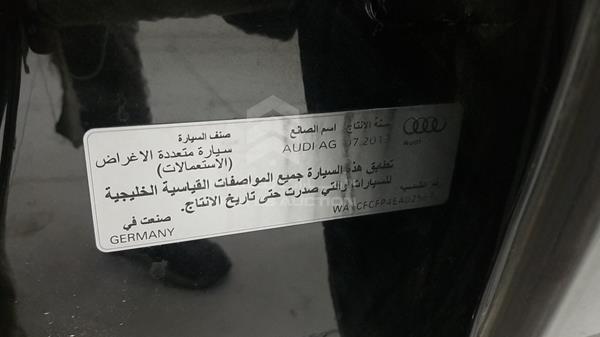 سنة الانتاج اسم الصانع صنف السيارة
AUDI AG 07.2013 سيارة متعددة الاغراض
Audi (الاستعمالات)
تطابق هذه السيارة جميع المواصفات القياسية الخليجية
للسيارات والتي صدرت حتى تاريخ الانتاج.
صنعت في
GERMANY
AUCTION